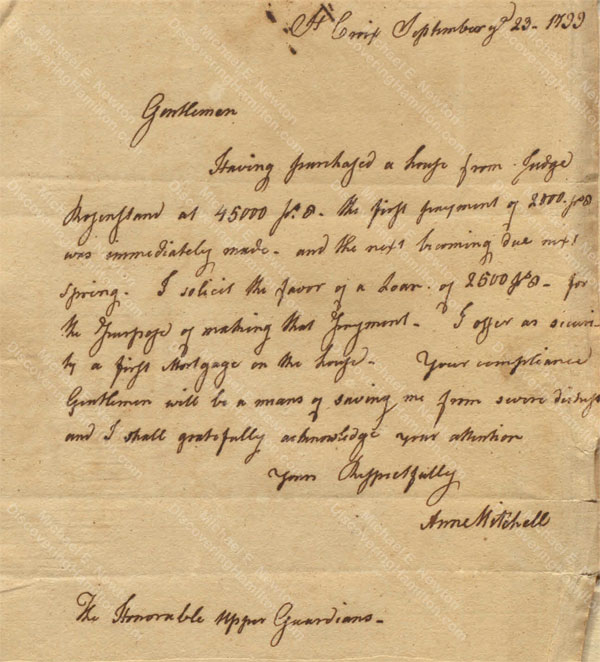 St Croix September ye 23 - 1799
Gentlemen
Having purchased a house from Judge
Rogenstand at 45000 ps. 8 - the first payment of 2000. ps 8
was immediately made - and the next becoming due next
spring - I solicit the favor of a Loan. of 2500 ps 8 - for
the Purpose of making that Payment - I offer as securi-
ty a first Mortgage on the house - Your compliance
Gentlemen will be a means of saving me from severe distress
and I shall gratefully acknowledge your attention
Yours Respectfully
Anne Mitchell
The Honorable Upper Guardians -
Michael E. Newton
DiscoveringHamilton.com